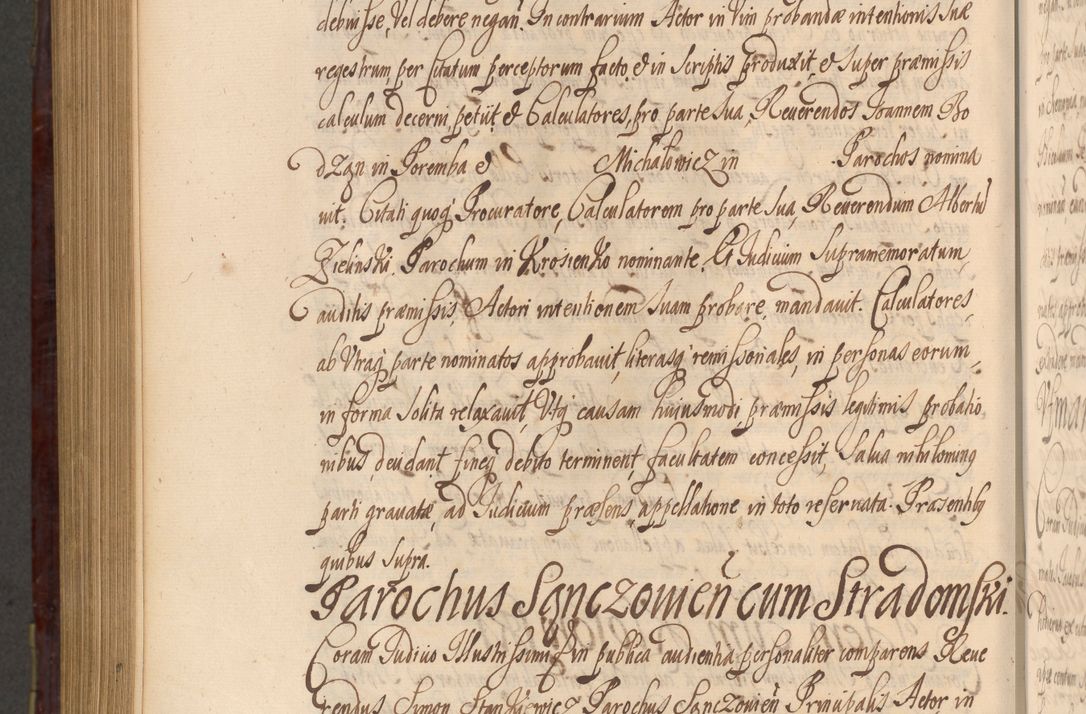 debuisse, Vel debere negañ. In contrarium Actor in Vim probandæ intentionis suæ
regestrum, per Citatum perceptorum facto, & in Scriptis produxit, & super præmissis
calculum decerni petijt & Calculatores, pro parte sua, Reuerendos Joannem Bo
dzęn in Poremba & Michałowicz in Parochos nomina
uit. Citati quoq Procuratore, Calculatorem pro parte sua, Reuerendum Albertũ
Zielinski Parochum in Krosienko nominante. Et Iudicium supramemoratum,
auditis præmissis, Actori intentionem suam probare, mandauit. Calculatores
ab Vtraq parte nominatos approbauit, literasq remissionales, in personas eorum
in forma solita relaxauit, Vtq causam huiusmodi, præmissis legitimis probatio
nibus, decidant, fineq debito terminent, facultatem concessit, Salua nihilominus
parti grauatæ, ad Iudicium præsens, appellatione in toto reseruata. Præsentibq
quibus supra.
Parochus Sęnczouieñ cum Stradomski.
Coram Iudicio Illustrissimi & in publica audientia personaliter comparens Reue
rendus Simon Stankiewicz Parochus Sęnczouieñ Principalis Actor in